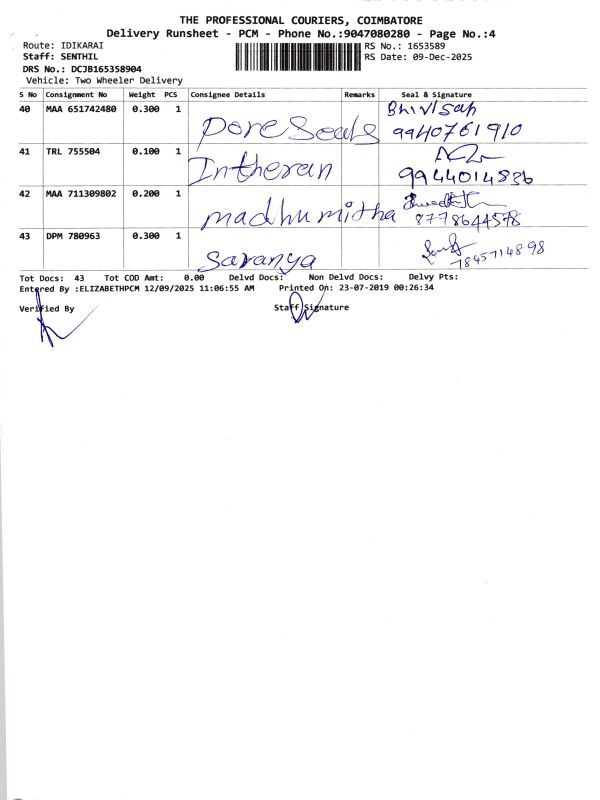 THE PROFESSIONAL COURIERS, COIMBATORE
Delivery Runsheet - PCM - Phone No.:9047080280 - Page No.:4
Route: IDIKARAI RS No.: 1653589
Staff: SENTHIL RS Date: 09-Dec-2025
DRS No.: DCJB165358904
Vehicle: Two Wheeler Delivery
S No Consignment No Weight PCS Consignee Details Remarks Seal & Signature
40 MAA 651742480 0.300 1 Pore Seals 9940761910
41 TRL 755504 0.100 1 Intheran 9944014836
42 MAA 711309802 0.200 1 madhumitha 8778644578
43 DPM 780963 0.300 1 Saranya 7845714898
Tot Docs: 43 Tot COD Amt: 0.00 Delvd Docs: Non Delvd Docs: Delvy Pts:
Entered By :ELIZABETHPCM 12/09/2025 11:06:55 AM Printed On: 23-07-2019 00:26:34
Verified By Staff Signature